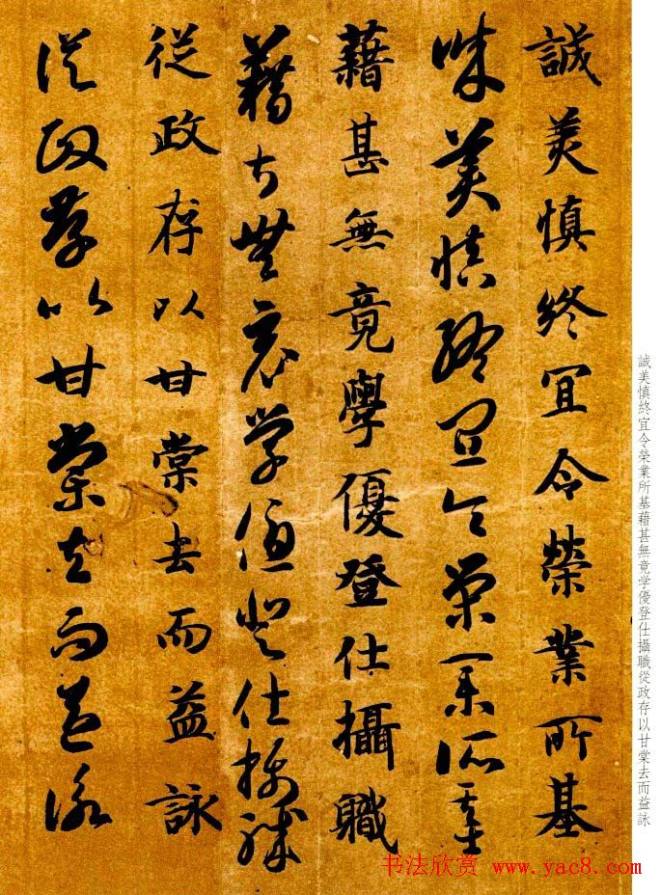 誠美慎終宜令榮業所基
誠美慎終宜令榮業所基
藉甚無竟學優登仕攝職
藉甚無竟學優登仕攝職
從政存以甘棠去而益詠
從政存以甘棠去而益詠
誠美慎終宜令榮業所基藉甚無竟学優登仕攝職從政存以甘棠去而益詠
书法欣赏 www.yac8.com